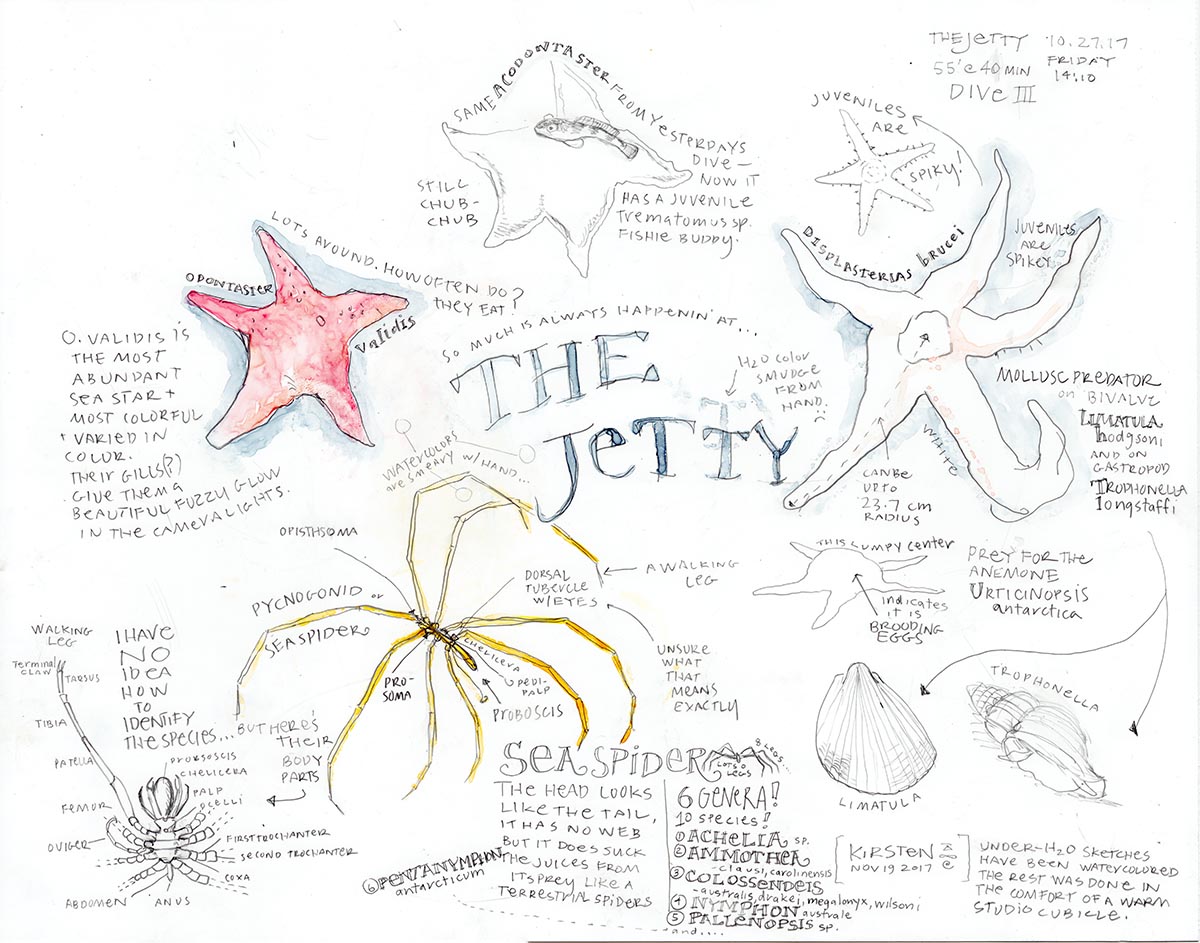 THE JETTY
55' @ 40 MIN
DIVE III
10.27.17
FRIDAY
14:10
SAME ACODONTASTER FROM YESTERDAYS
DIVE —
NOW IT
HAS A JUVENILE
Trematomus sp.
FISHIE BUDDY.
STILL
CHUB-
CHUB
JUVENILES
ARE
SPIKY!
DISPLASTERIAS brucei
JUVENILES
ARE
SPIKEY
LOTS AROUND. HOW OFTEN DO
THEY EAT?
ODONTASTER
validis
O. VALIDIS IS
THE MOST
ABUNDANT
SEA STAR +
MOST COLORFUL
+ VARIED IN
COLOR.
THEIR GILLS(?)
GIVE THEM A
BEAUTIFUL FUZZY GLOW
IN THE CAMERA LIGHTS.
SO MUCH IS ALWAYS HAPPENIN' AT...
THE
JETTY
H2O COLOR
SMUDGE
FROM
HAND.
:(
WATERCOLORS
are SMEARY W/ HAND...
WHITE
CAN BE
UP TO
23.7 cm
RADIUS
MOLLUSC PREDATOR
on BIVALVE
LIMATULA
hodgsoni
AND ON
GASTROPOD
TROPHONELLA
longstaffi
THIS LUMPY center
indicates
it is
BROODING
EGGS
PREY FOR THE
ANEMONE
URTICINOPSIS
antarctica
LIMATULA
TROPHONELLA
OPISTHSOMA
PYCNOGONID or
SEA SPIDER
DORSAL
TUBERCLE
W/EYES
A WALKING
LEG
UNSURE
WHAT
THAT
MEANS
EXACTLY
CHELICERA
PEDI-
PALP
PRO-
SOMA
PROBOSCIS
I HAVE
NO
IDEA
HOW
TO
IDENTIFY
THE SPECIES... BUT HERE'S
THEIR
BODY
PARTS
WALKING
LEG
Terminal
CLAW
TARSUS
TIBIA
PATELLA
FEMUR
OVIGER
PROBSOSCIS
CHELICERA
PALP
OCELLI
FIRST TROCHANTER
SECOND TROCHANTER
COXA
ABDOMEN
ANUS
SEA SPIDER
LOTS O
LEGS
8 LEGS...
THE HEAD LOOKS
LIKE THE TAIL,
IT HAS NO WEB
BUT IT DOES SUCK
THE JUICES FROM
ITS PREY LIKE A
TERRESTRIAL SPIDERS
6 GENERA!
10 SPECIES!
① ACHELIA sp.
② AMMOTHEA
-clausi, carolinensis
③ COLOSSENDEIS
-australis, drakei, megalonyx, wilsoni
④ NYMPHON australe
⑤ PALLENOPSIS sp.
and....
⑥ PENTANYMPHON
antarcticum
KIRSTEN
NOV 19 2017
UNDER-H2O SKETCHES
HAVE BEEN WATERCOLORED
THE REST WAS DONE IN
THE COMFORT OF A WARM
STUDIO CUBICLE.